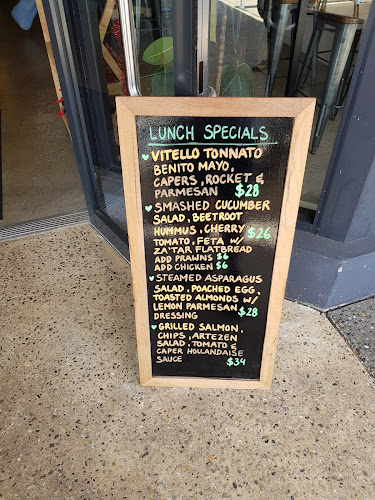 LUNCH SPECIALS
VITELLO TONNATO
BENITO MAYO,
CAPERS, ROCKET &
PARMESAN $28
SMASHED CUCUMBER
SALAD, BEETROOT
HUMMUS, CHERRY $26
TOMATO, FETA W/
ZA'TAR FLATBREAD
ADD PRAWNS $6
ADD CHICKEN $6
STEAMED ASPARAGUS
SALAD, POACHED EGG,
TOASTED ALMONDS W/
LEMON PARMESAN $28
DRESSING
GRILLED SALMON,
CHIPS, ARTEZEN
SALAD, TOMATO &
CAPER HOLLANDAISE
SAUCE $34